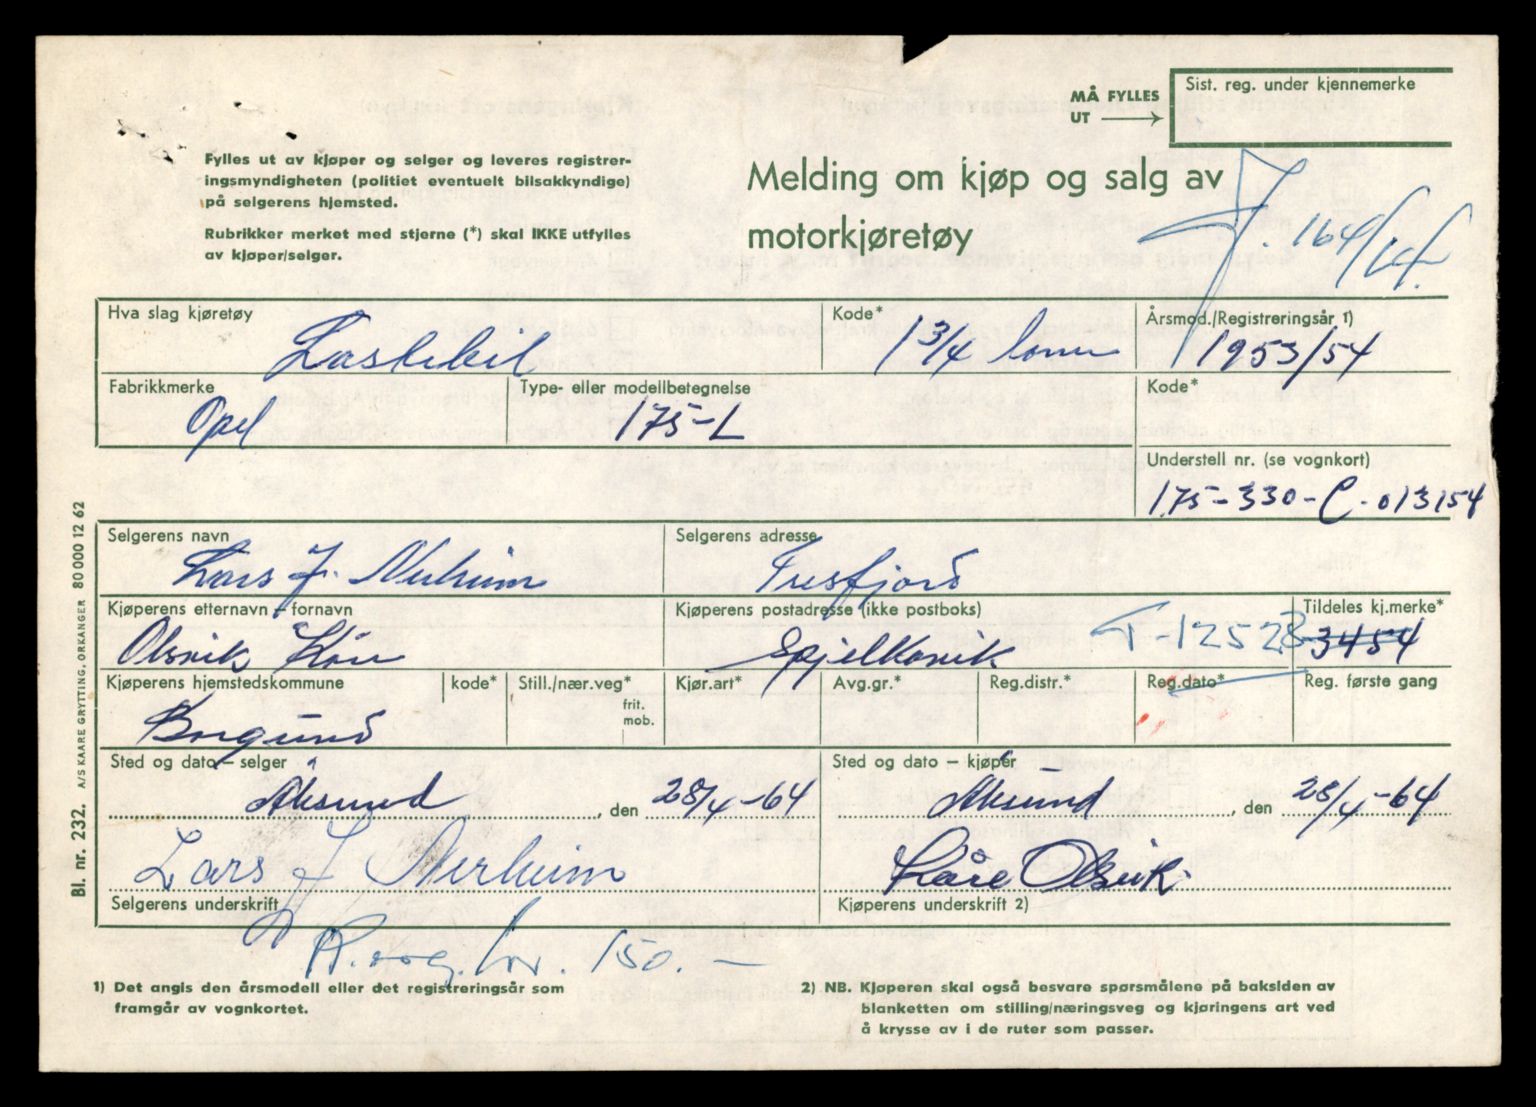 MÅ FYLLES UT
Sist. reg. under kjennemerke
Fylles ut av kjøper og selger og leveres registrer-
ingsmyndigheten (politiet eventuelt bilsakkyndige)
på selgerens hjemsted.
Rubrikker merket med stjerne (*) skal IKKE utfylles
av kjøper/selger.
Melding om kjøp og salg av
motorkjøretøy
J. 164/64
Hva slag kjøretøy
Lastebil
Kode*
1 3/4 tonn
Årsmod./Registreringsår 1)
1953/54
Fabrikkmerke
Opel
Type- eller modellbetegnelse
175-L
Kode*
Understell nr. (se vognkort)
175-330-C-013154
Selgerens navn
Lars J. Nerheim
Selgerens adresse
Tresfjord
Kjøperens etternavn - fornavn
Olsvik Kåre
Kjøperens postadresse (ikke postboks)
Spjelkavik
T-12528
Tildeles kj.merke*
3454
Kjøperens hjemstedskommune
Borgund
kode*
Still./nær.veg*
frit.
mob.
Kjør.art*
Avg.gr.*
Reg.distr.*
Reg.dato*
Reg. første gang
Sted og dato - selger
Ålesund, den 28/4-64
Sted og dato - kjøper
Ålesund, den 28/4-64
Lars J Nerheim
Selgerens underskrift
Kåre Olsvik
Kjøperens underskrift 2)
kr. 150.-
1) Det angis den årsmodell eller det registreringsår som
framgår av vognkortet.
2) NB. Kjøperen skal også besvare spørsmålene på baksiden av
blanketten om stilling/næringsveg og kjøringens art ved
å krysse av i de ruter som passer.
Bl. nr. 232. A/S KAARE GRYTTING, ORKANGER 80 000 12 62